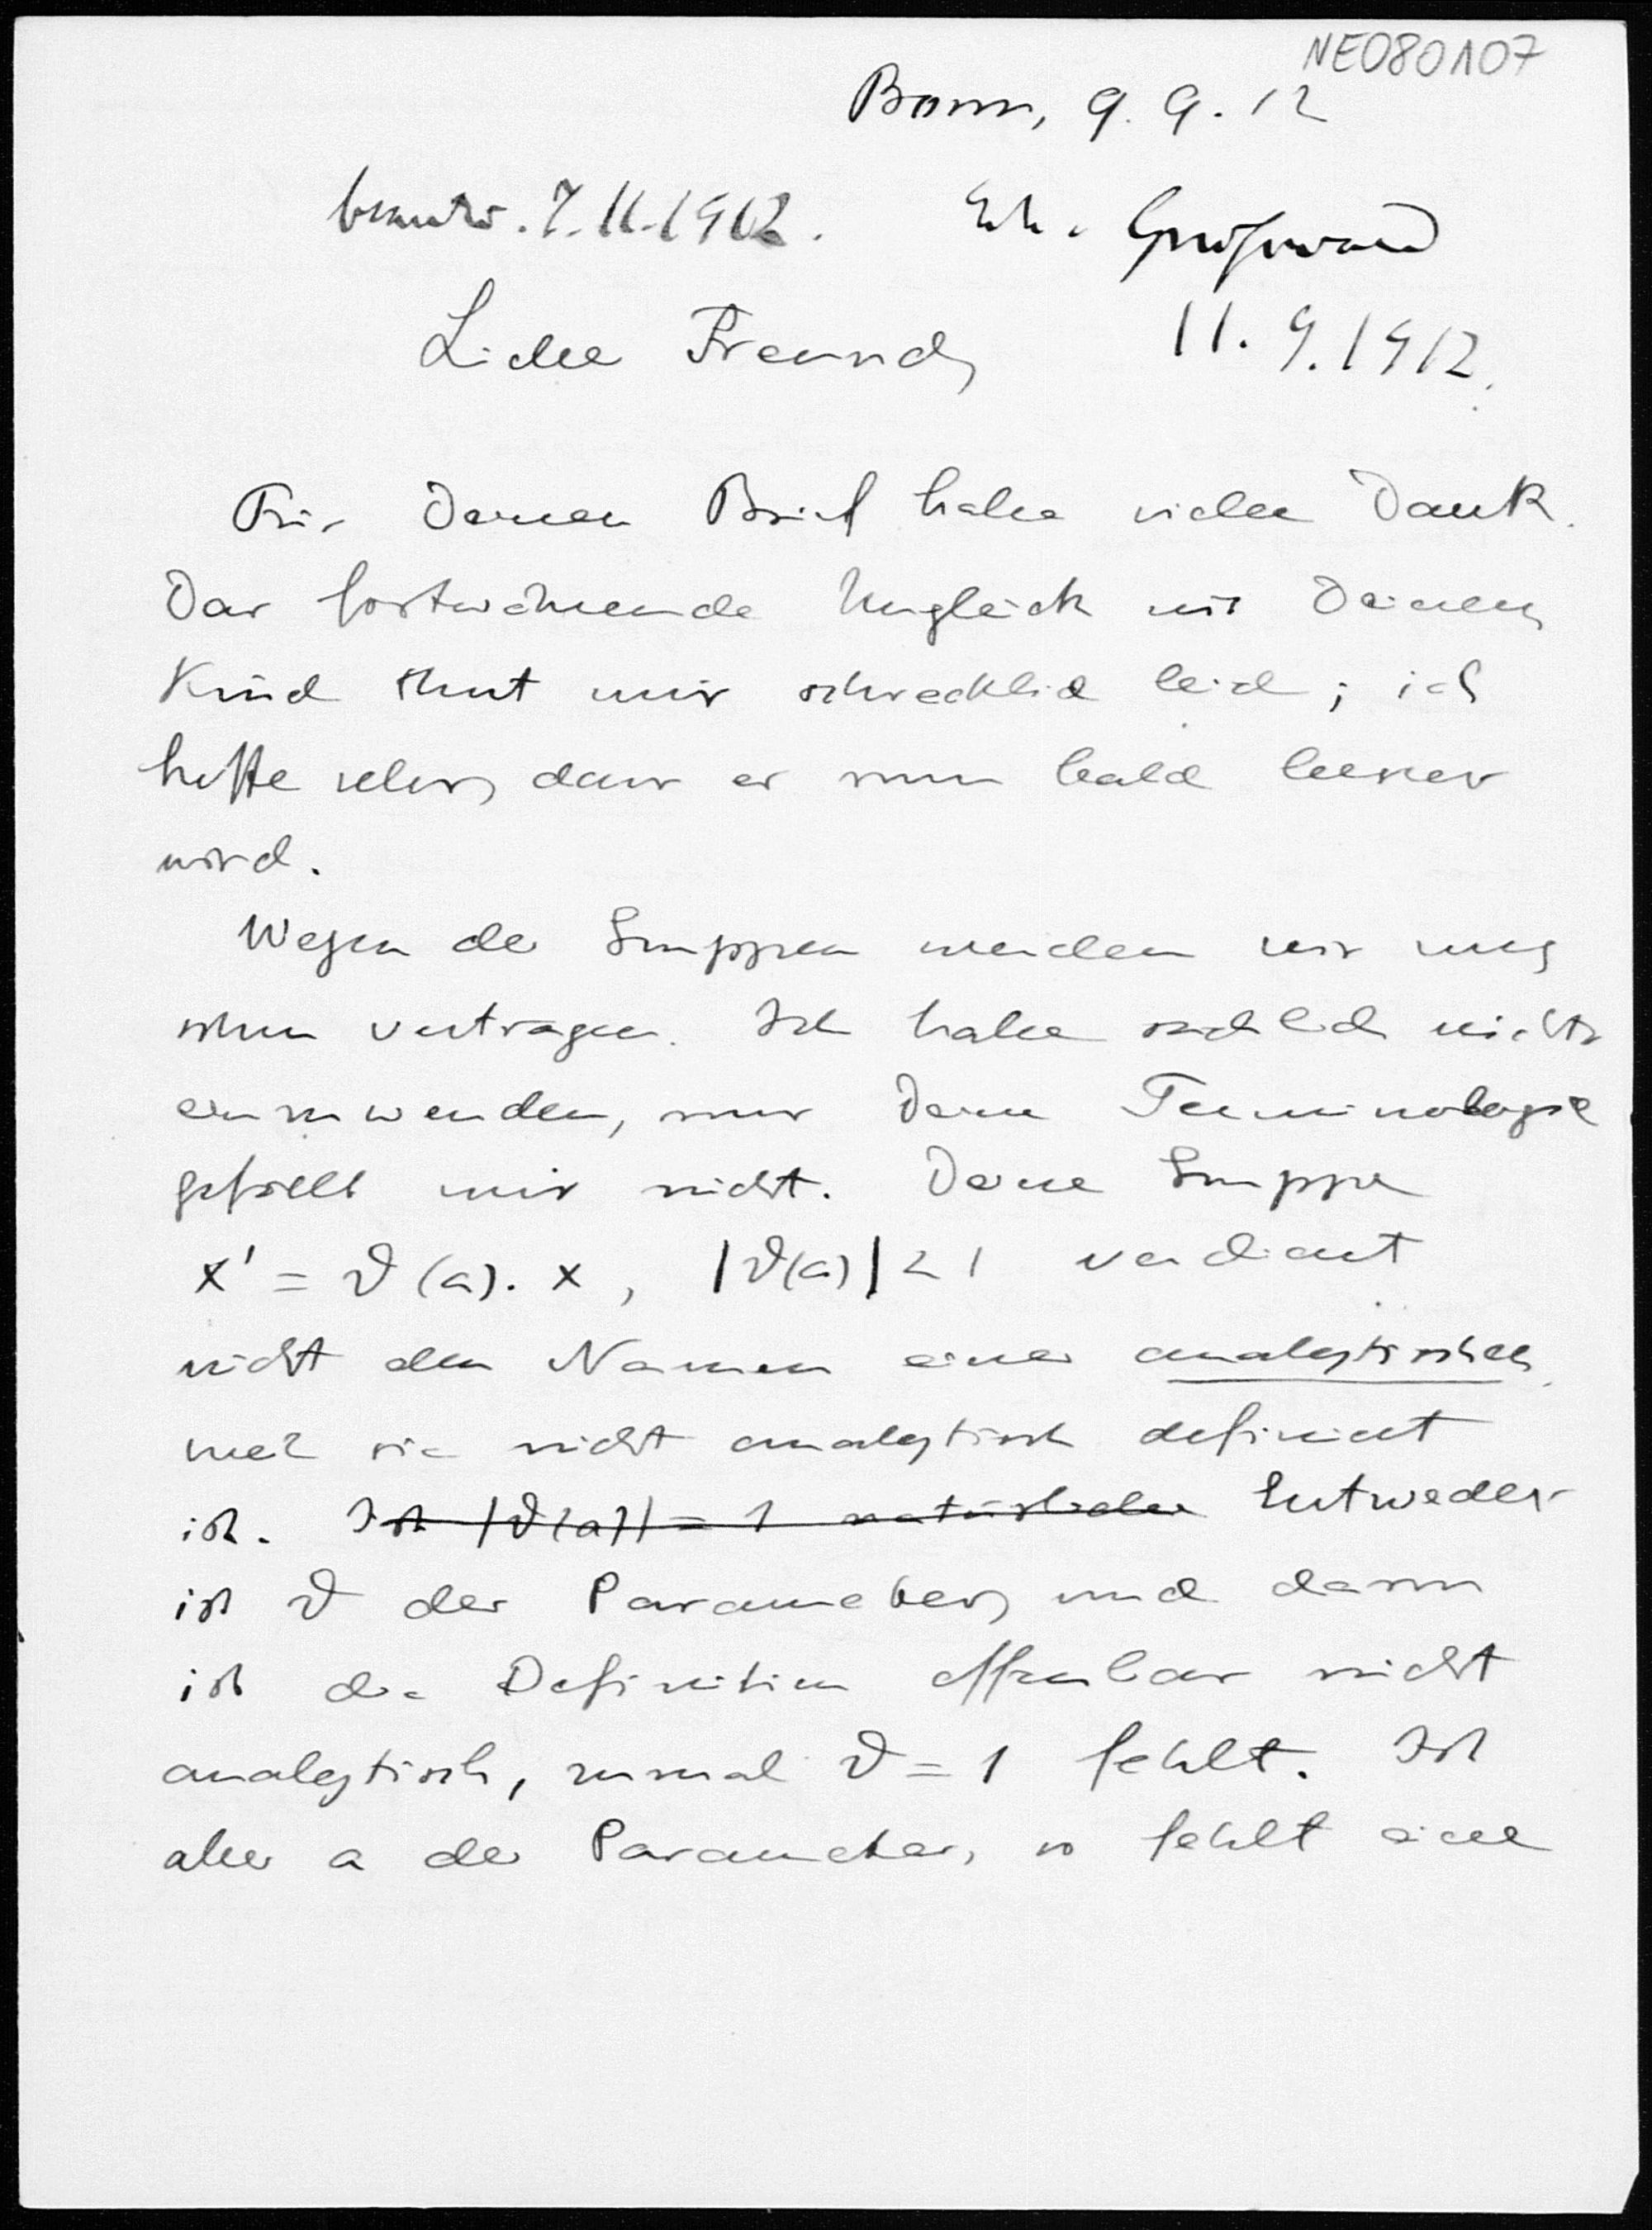 NE080107
Bonn, 9. 9. 12
beantw. 7.11.1912. Erh. Greifswald
Lieber Freund, 11.9.1912.
Für Deinen Brief habe vielen Dank.
Das fortwährende Unglück mit Deinem
Kind thut mir schrecklich leid; ich
hoffe sehr, dass es nun bald besser
wird.
Wegen der Gruppen werden wir uns
schon vertragen. Ich habe sachlich nichts
einzuwenden, nur Deine Terminologie
gefällt mir nicht. Deine Gruppe
x' = ϑ(a). x, |ϑ(a)| < 1 verdient
nicht den Namen einer analytischen,
weil sie nicht analytisch definiert
ist. Ist |ϑ(a)| = 1 natürlicher Entweder
ist ϑ der Parameter, und dann
ist die Definition offenbar nicht
analytisch, zumal ϑ = 1 fehlt. Ist
aber a der Parameter, so fehlt eine